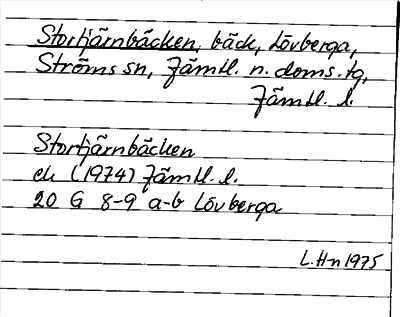 Stortjärnbäcken, bäck, Lövberga,
Ströms sn, Jämtl. n. doms. tg,
Jämtl. l.
Stortjärnbäcken
ek (1974) Jämtl. l.
20 G 8-9 a-b Lövberga
L. Hn 1975